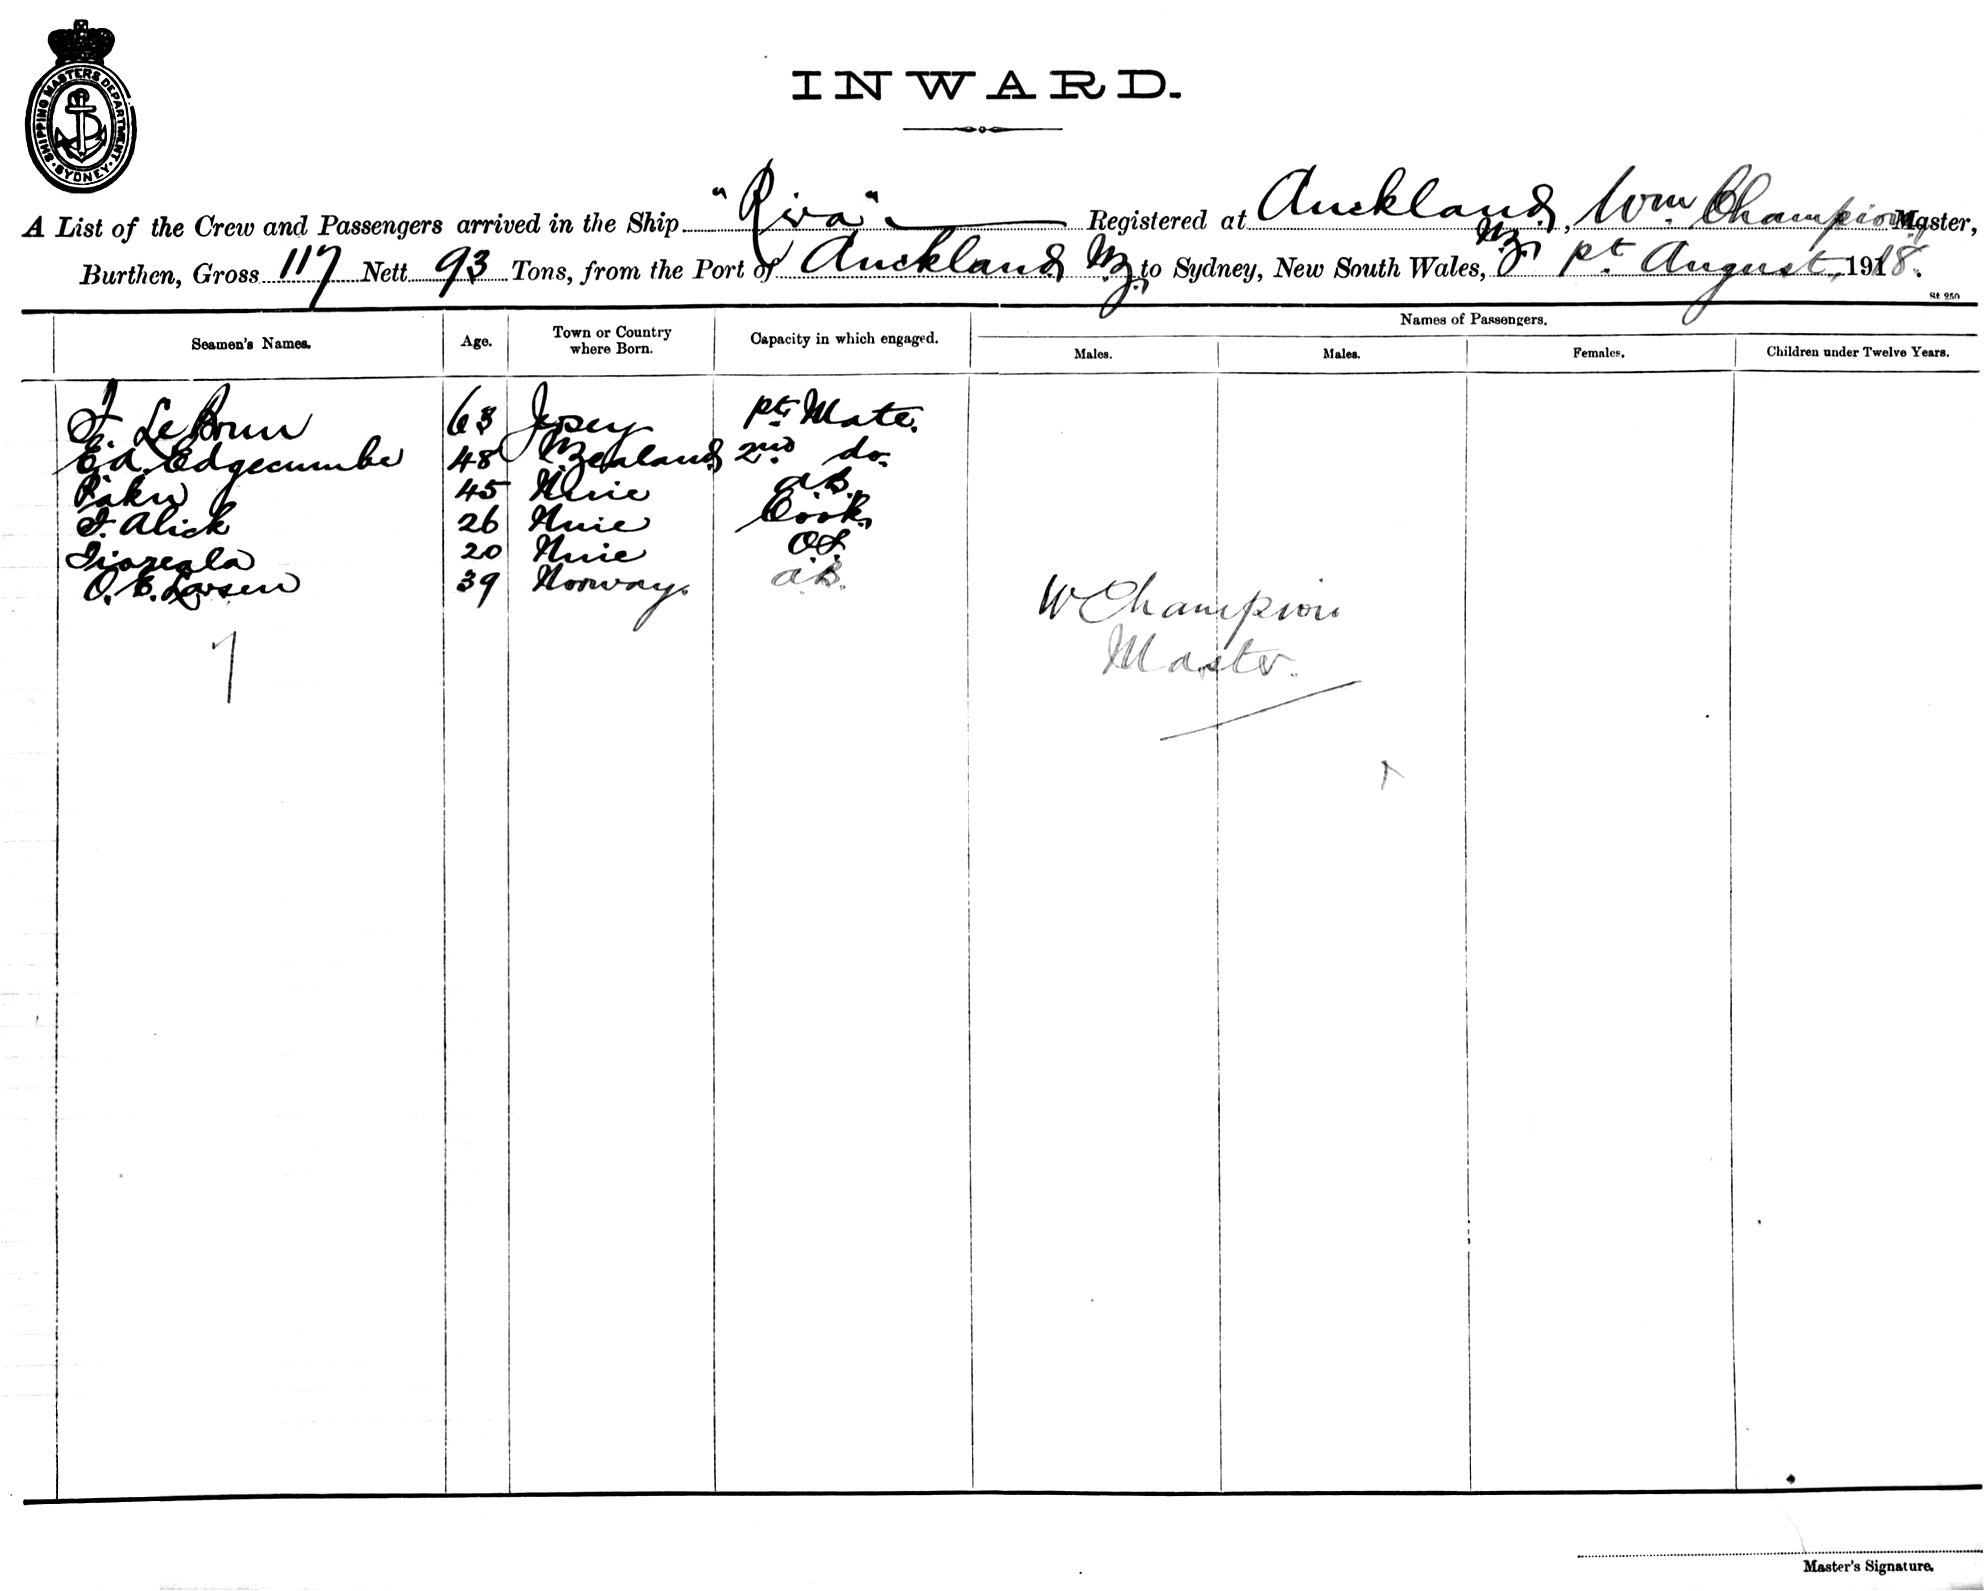 SHIPPING MASTERS DEPARTMENT. SYDNEY.
INWARD.
A List of the Crew and Passengers arrived in the Ship "Riva" Registered at Auckland N.Z., Wm Champion, Master,
Burthen, Gross 117 Nett 93 Tons, from the Port of Auckland N.Z. to Sydney, New South Wales, August, 1918.
St. 250
Seamen's Names. Age. Town or Country where Born. Capacity in which engaged. Names of Passengers.
Males. Males. Females. Children under Twelve Years.
Le Brun 63 Jersey Mate.
Ed. Edgecumbe 48 N. Zealand 2nd do.
45 Niue A.B.
Alick 26 Niue Cook
20 Niue O.S.
O. E. Larsen 39 Norway. A.B.
7
W Champion
Master.
Master's Signature.